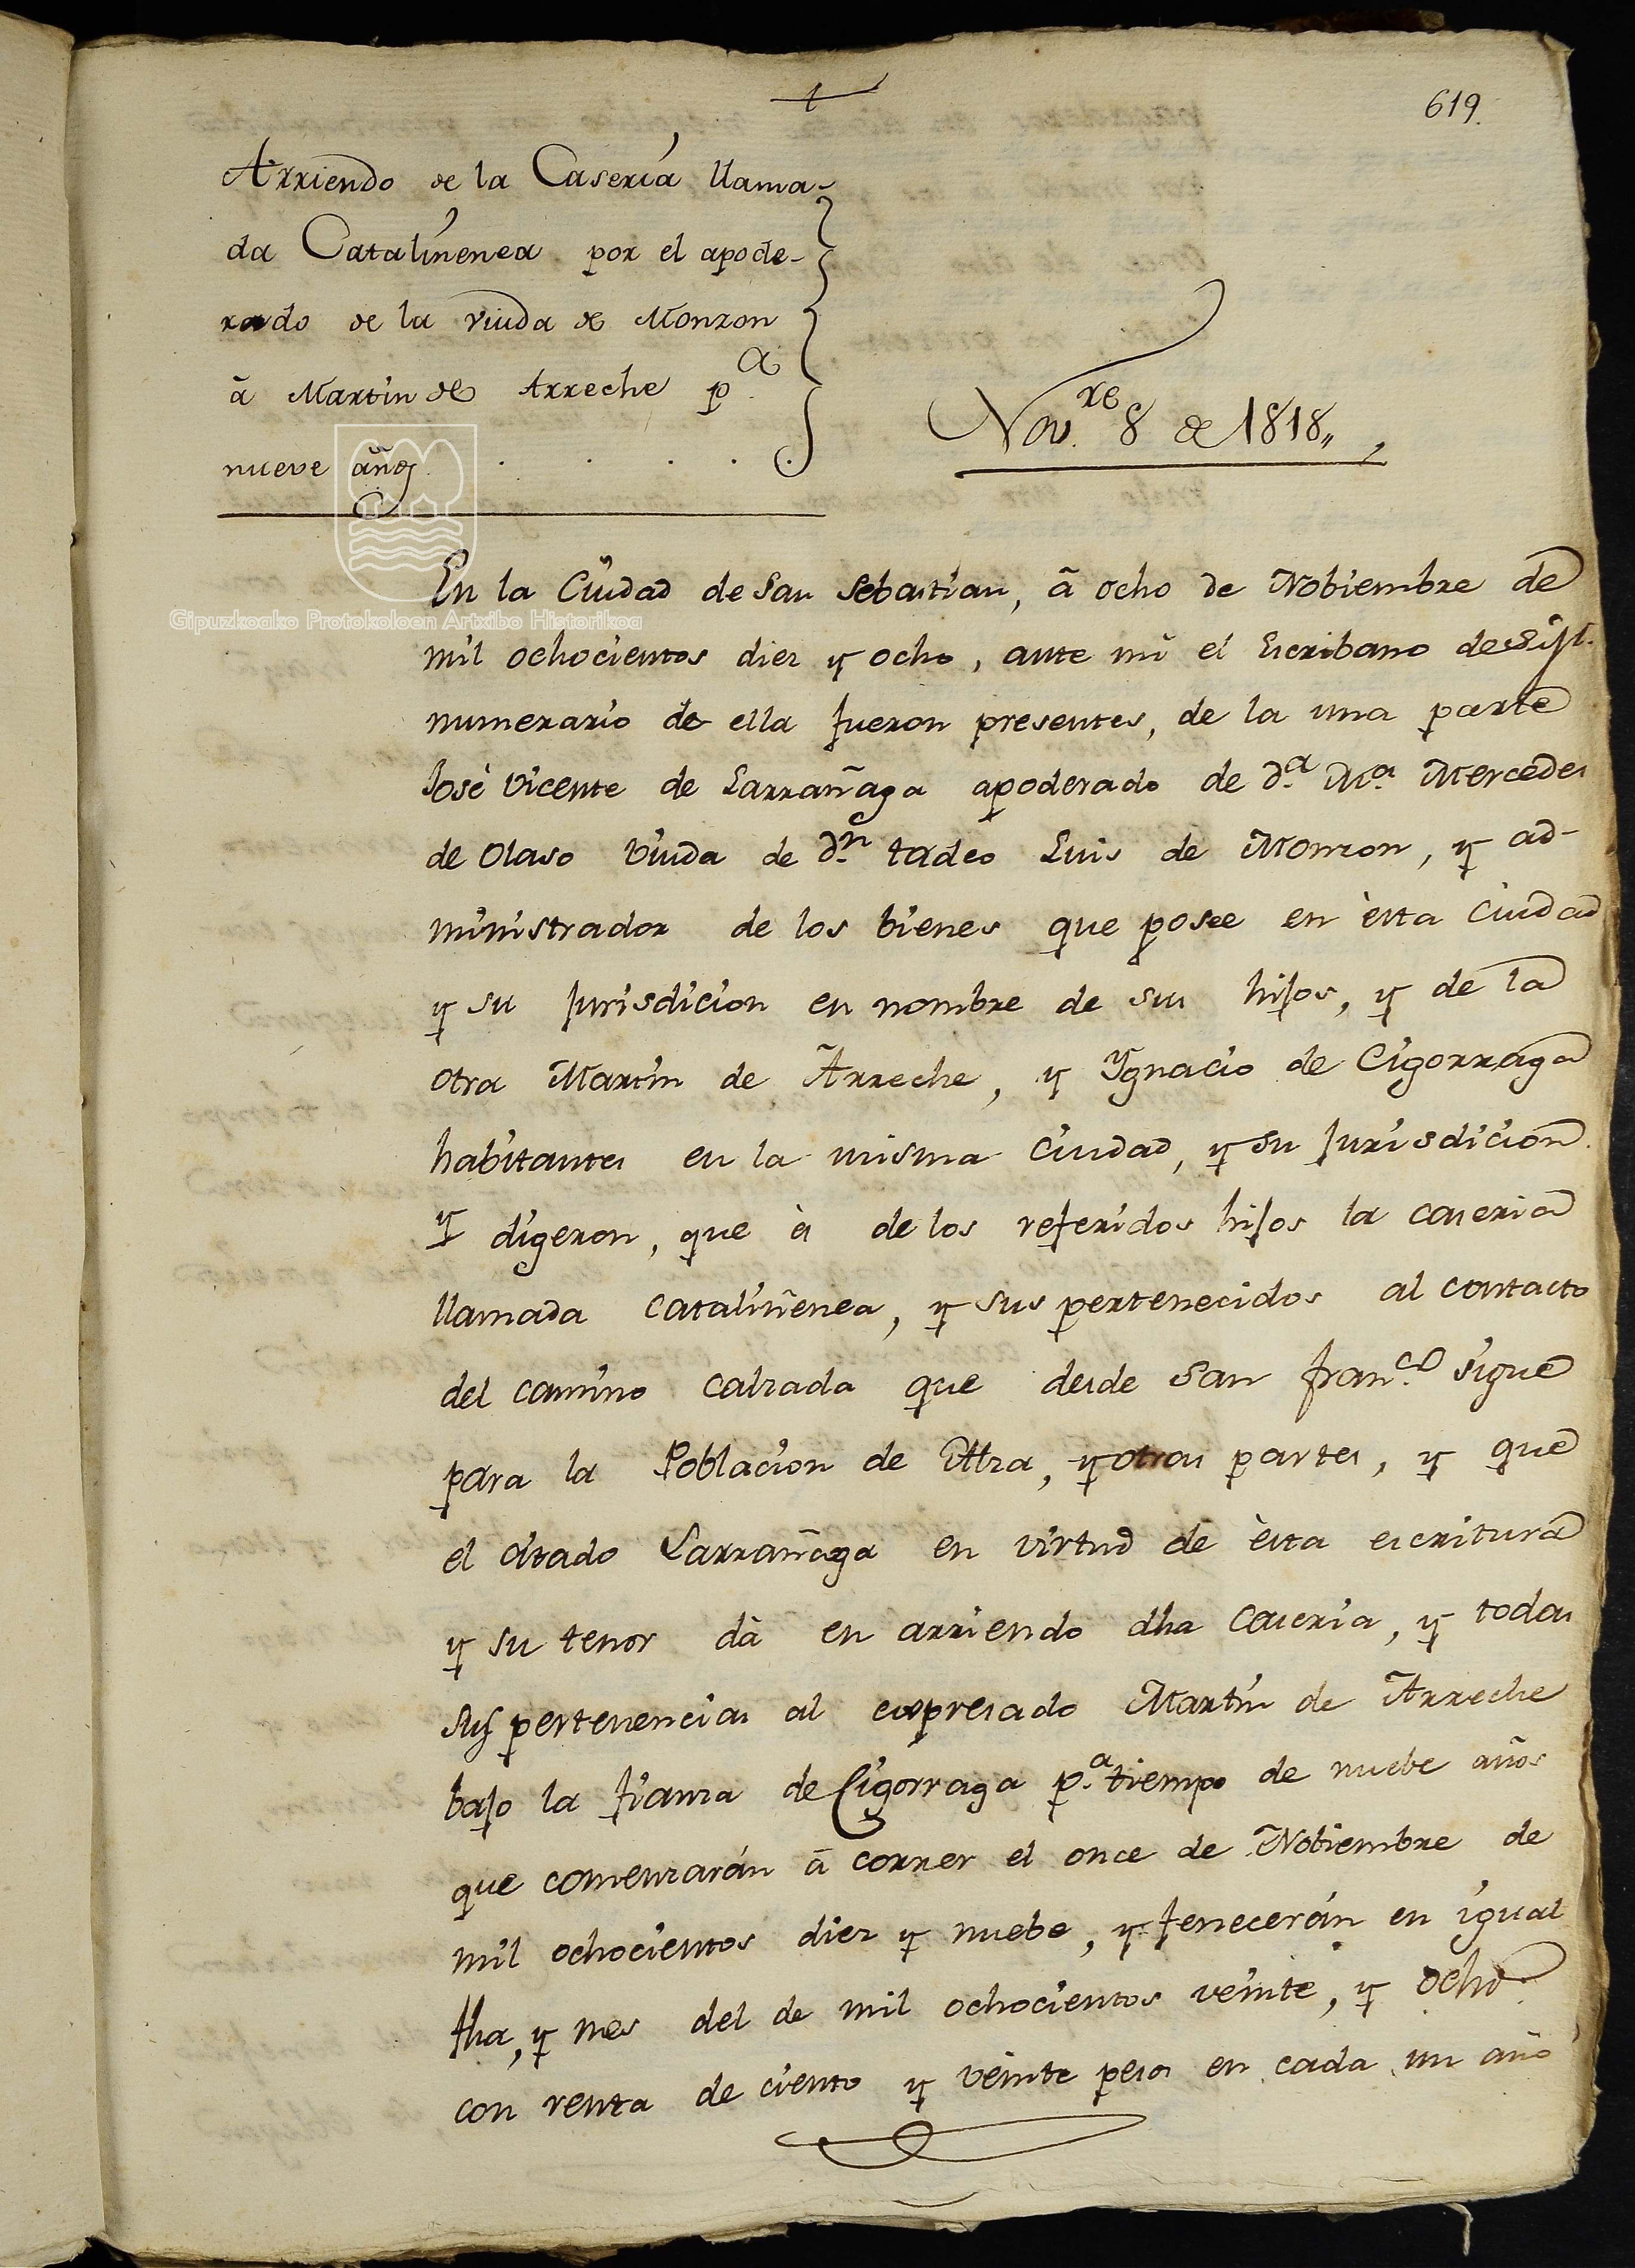 619.
Arriendo de la Casería llama-
da Catalinenea por el apode-
rado de la viuda de Monzon
â Martin de Arreche pª
nueve años
Nov.re 8 de 1818,,
En la Ciudad de San Sebastian, â ocho de Nobiembre de
mil ochocientos diez y ocho, ante mi el Escribano de S.M.
numerario de ella fueron presentes, de la una parte
José Vicente de Larrañaga apoderado de d.ª M.ª Mercedes
de Olaso Viuda de d.n tadeo Luis de Monzon, y ad-
ministrador de los bienes que posee en èsta Ciudad
y su Jurisdicion en nombre de sus hijos, y de la
otra Martin de Arreche, y Ygnacio de Cigorraga
habitantes en la misma Ciudad, y su Jurisdicion
y digeron, que ès de los referidos hijos la caseria
llamada Cataliñenea, y sus pertenecidos al contacto
del camino calzada que desde San Fran.co sigue
para la Poblacion de Alza, y otras partes, y que
el citado Larrañaga en virtud de èsta escritura
y su tenor dà en arriendo dha Caseria, y todas
sus pertenencias al expresado Martin de Arreche
bajo la fianza de Cigorraga p.ª tiempo de nuebe años
que comenzarán â correr el once de Nobiembre de
mil ochocientos diez y nuebe, y fenecerán en igual
fha, y mes del de mil ochocientos veinte, y ocho
con renta de ciento y veinte pesos en cada un año
Gipuzkoako Protokoloen Artxibo Historikoa